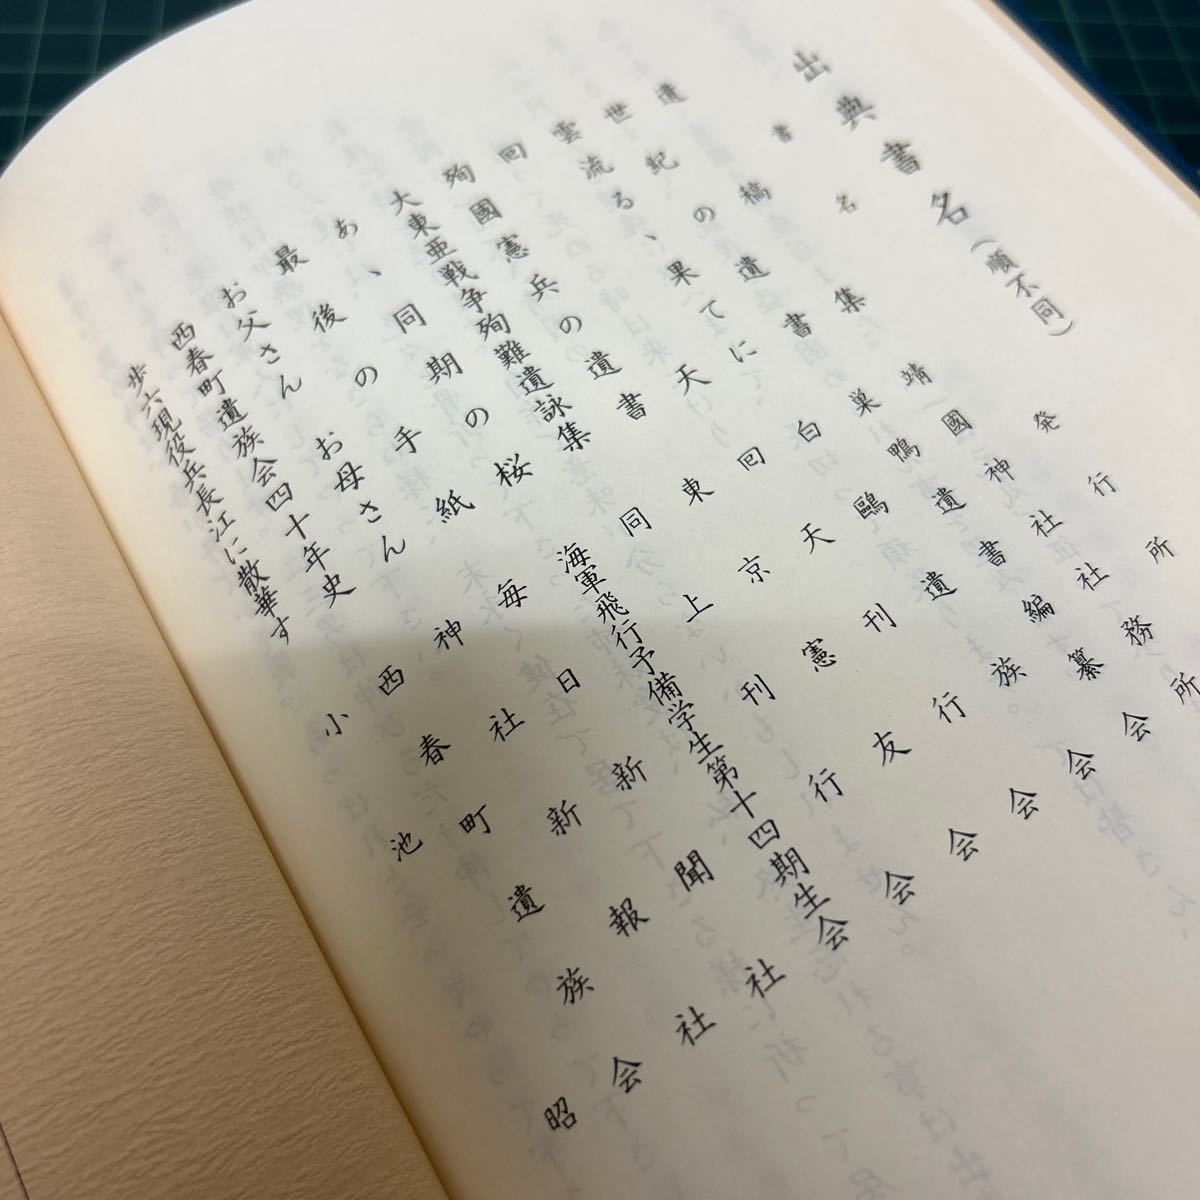 出典書名(順不同)
書名 発行所
遺稿集 靖國神社社務所
世紀の遺書 巣鴨遺書編纂会
雲流る、果てに 白鷗遺族会
回天 回天刊行会
殉國憲兵の遺書 東京憲友会
大東亜戦争殉難遺詠集 同上刊行会
あ、同期の桜 海軍飛行予備学生第十四期生会
最後の手紙 毎日新聞社
お父さんお母さん 神社新報社
西春町遺族会四十年史 西春町遺族会
歩六現役兵長江に散華す 小池昭